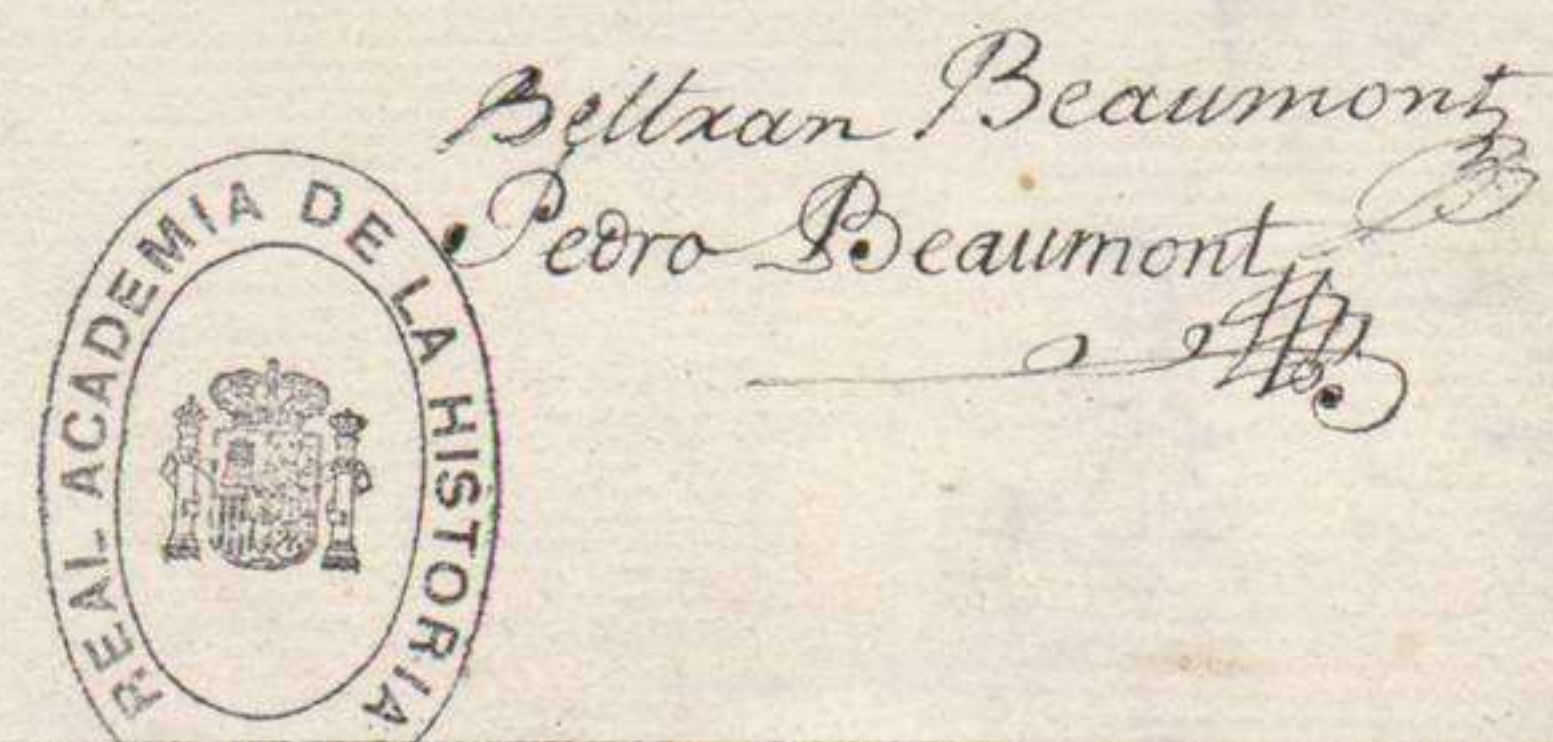 Beltran Beaumont
Pedro Beaumont
REAL ACADEMIA DE LA HISTORIA